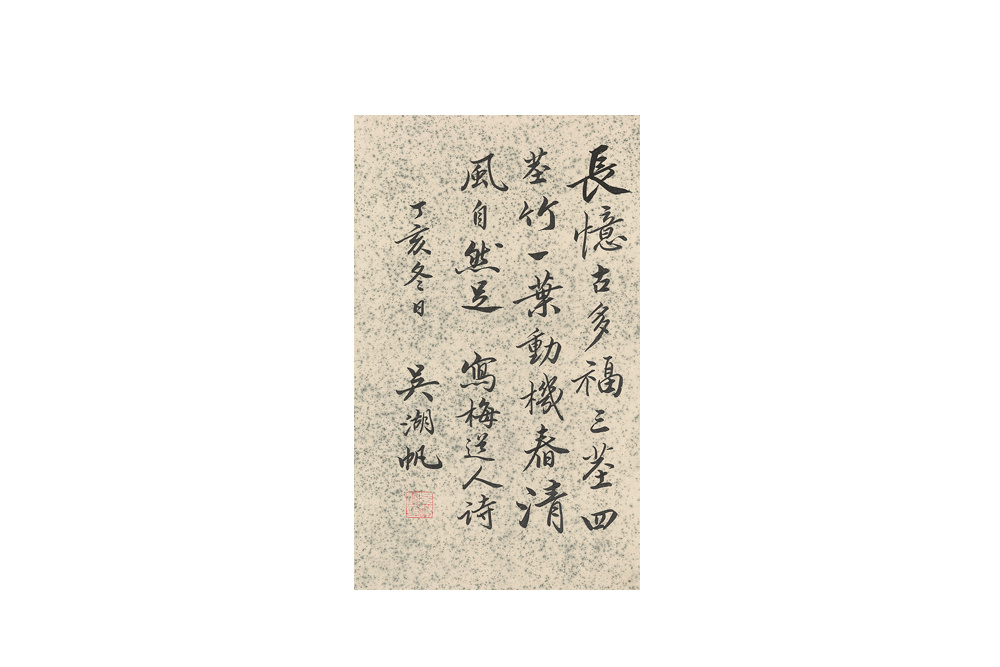 長憶古多福三莖四
莖竹一葉動機春清
風自然足 寫梅送人詩
丁亥冬日 吳湖帆